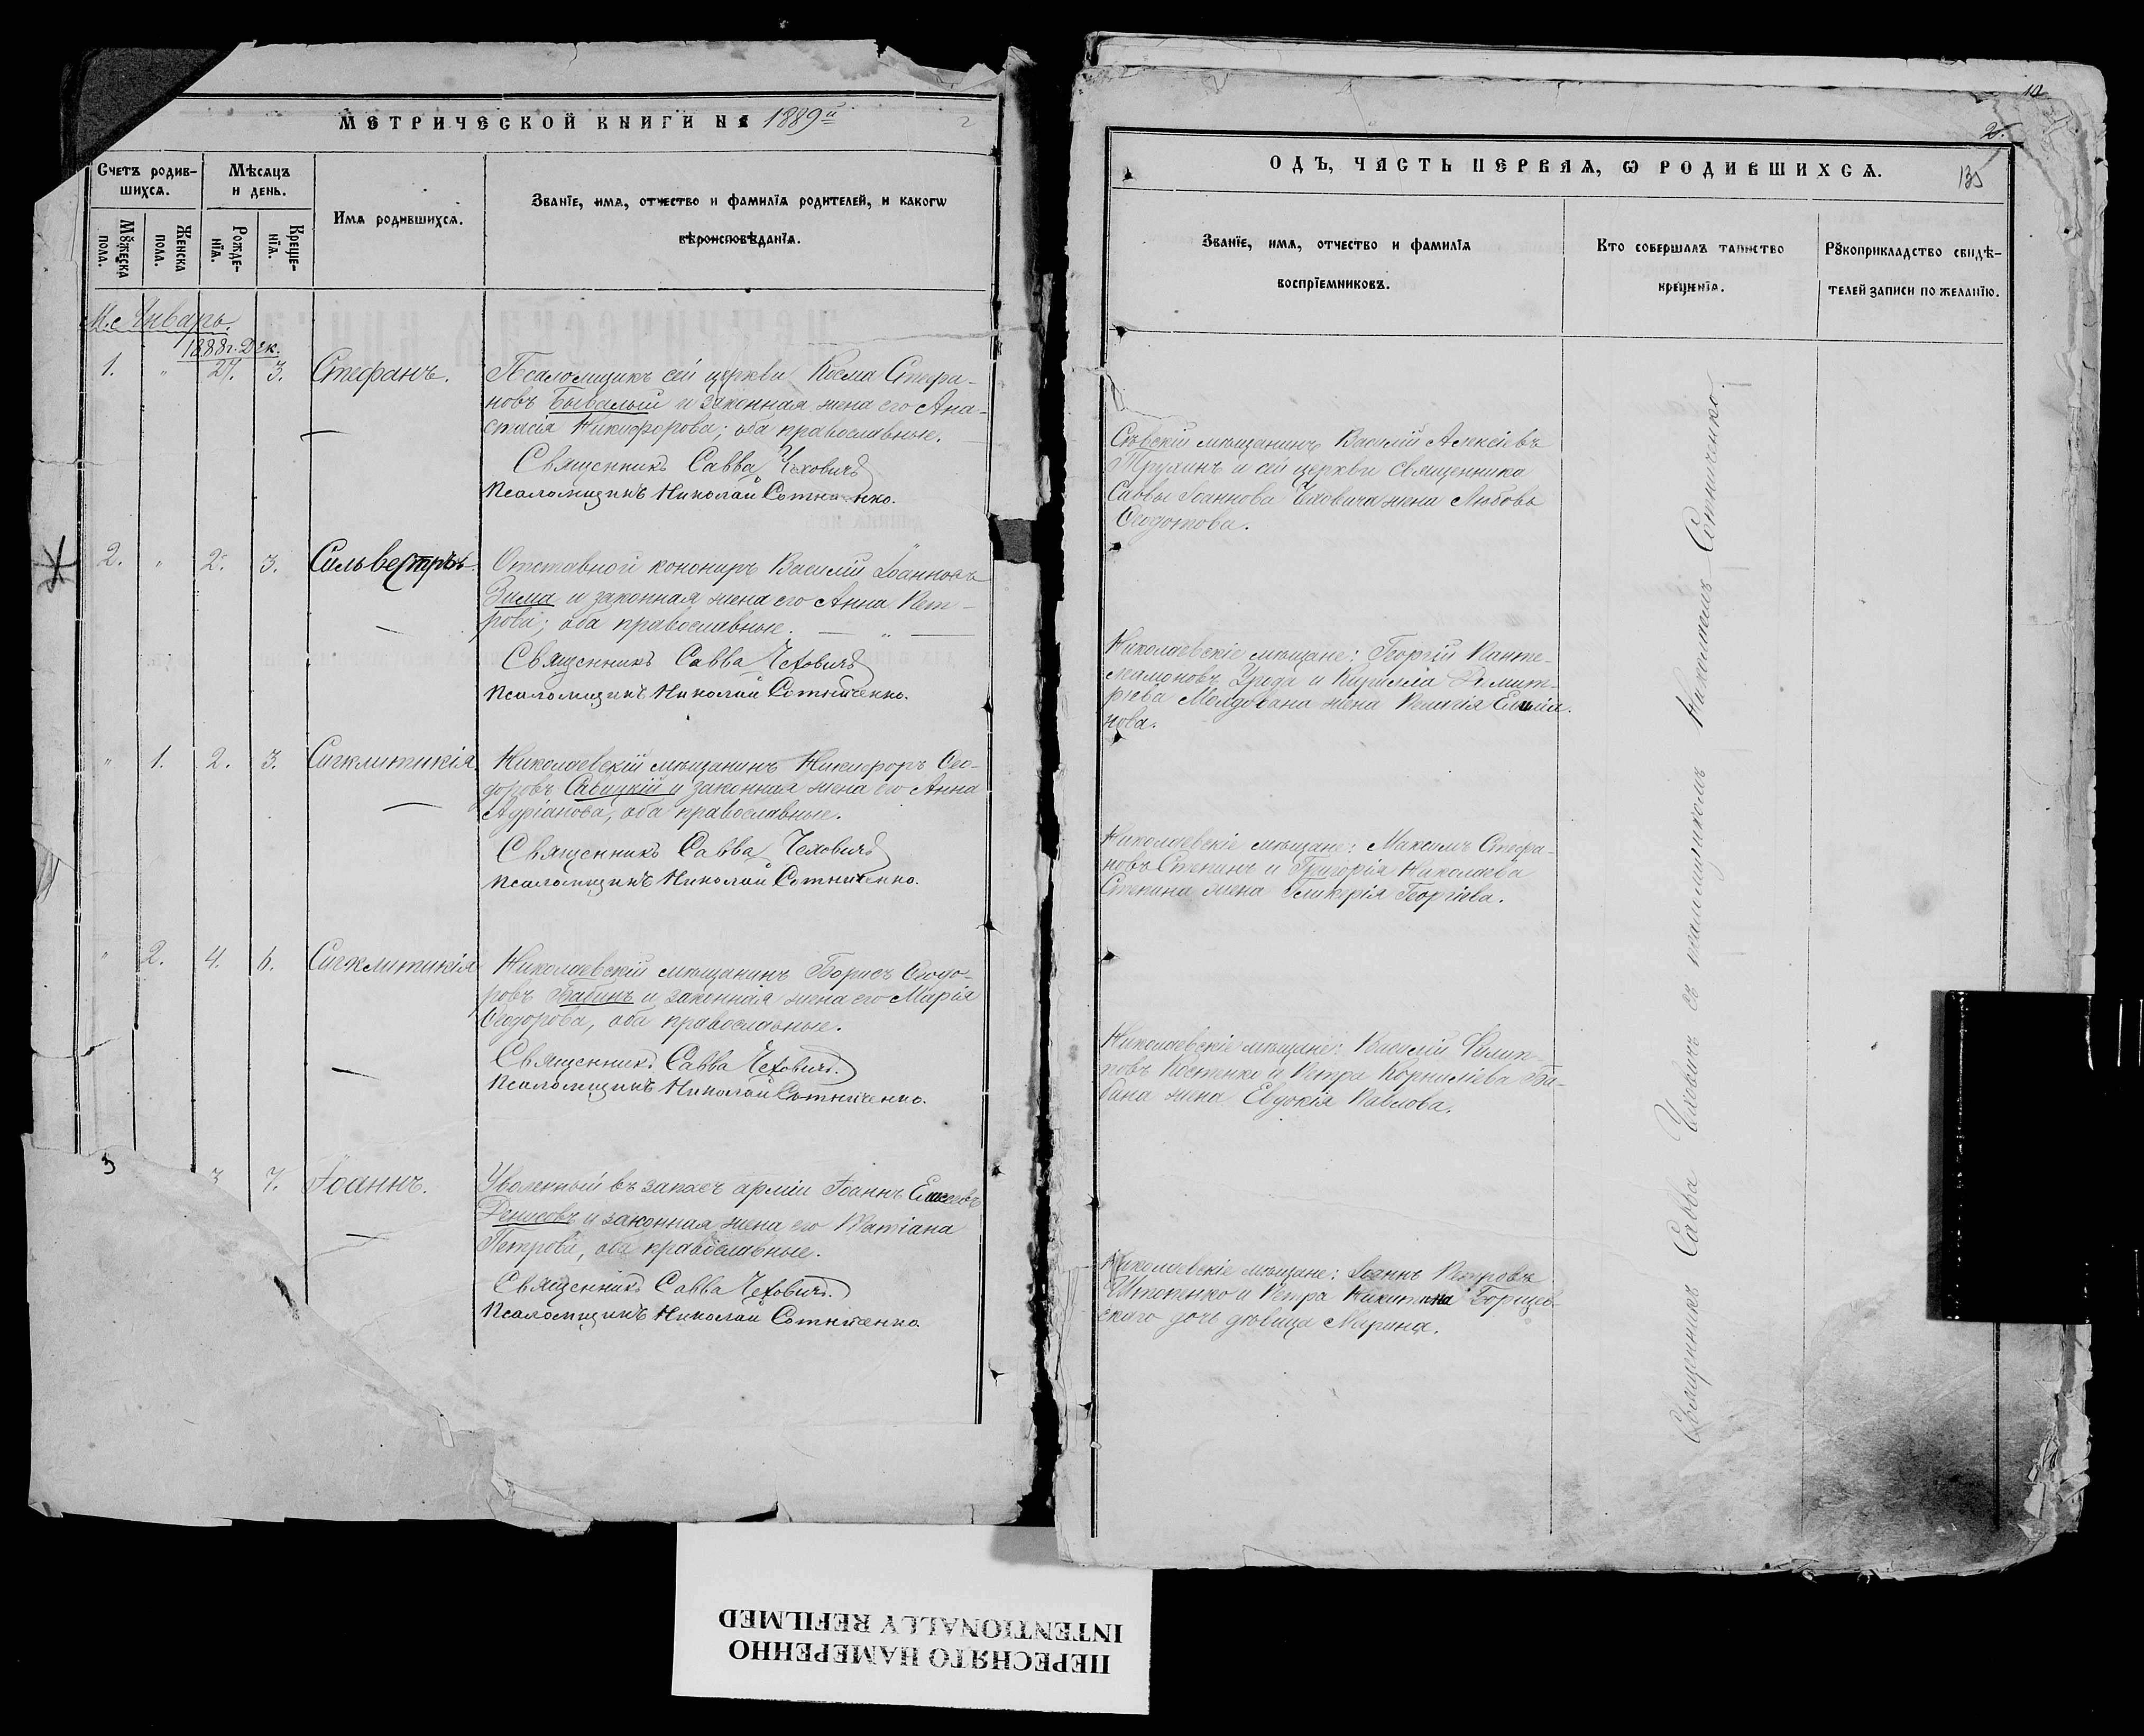 МЕТРИЧЕСКОЙ КНИГИ НА 1889й
2
Счетъ родив-
шихсѧ.
Мѣсѧцъ
и день.
Имѧ родившихсѧ.
Званїе, имѧ, отчество и фамилїѧ родителей, и какогѡ
вѣроисповѣданїѧ.
Мꙋжеска
пола.
Женска
пола.
Рожде-
нїѧ.
Креще-
нїѧ.
М.с Январь.
1888 г. Дек.
1. " 27. 3. Стефанъ. Псаломщикъ сей церкви Косма Стефа-
новъ Бывалый и законная жена его Ана-
стасія Никифорова; оба православные.
Священникъ Савва Чехович
Псаломщикъ Николай Сотниченко.
2. " 2. 3. Сильвестръ. Отставной канониръ Василій Іоанновъ
Зима и законная жена его Анна Пет-
рова; оба православные. — " —
Священникъ Савва Чехович
Псаломщикъ Николай Сотниченко.
" 1. 2. 3. Сигклитикія Николаевскій мѣщанинъ Никифоръ Ѳео-
доровъ Савицкій и законная жена его Анна
Адріанова, оба православные.
Священникъ Савва Чехович
Псаломщикъ Николай Сотниченко.
" 2. 4. 6. Сигклитикія Николаевскій мѣщанинъ Борисъ Ѳеодо-
ровъ Бабинъ и законная жена его Марія
Ѳеодорова, оба православные.
Священникъ Савва Чеховичъ.
Псаломщикъ Николай Сотниченко.
3 3 7. Іоаннъ. Уволенный въ запасъ арміи Іоаннъ Елисеевъ
Денисовъ и законная жена его Татіана
Петрова, оба православные.
Священникъ Савва Чеховичъ.
Псаломщикъ Николай Сотниченко.
2.
135
ОДЪ, ЧАСТЬ ПЕРВАѦ, Ѡ РОДИВШИХСѦ.
Званїе, имѧ, отчество и фамилїѧ
воспрїемниковъ.
Кто совершалъ таинство
крещенїѧ.
Рꙋкоприкладство свидѣ-
телей записи по желанїю.
Сѣвскій мѣщанинъ Василій Алексіевъ
Трухинъ и сей церкви священника
Саввы Іоаннова Чеховича жена Любовь
Ѳеодотова.
Николаевскіе мѣщане: Георгій Панте-
леимоновъ Урода и Кирилла Димит-
ріева Молдована жена Пелагія Емилиа-
нова.
Николаевскіе мѣщане: Максимъ Стефа-
новъ Степинъ и Григорія Николаева
Степина жена Гликерія Георгіева.
Николаевскіе мѣщане: Василій Филип-
повъ Костенко и Петра Корниліева Ба-
бина жена Евдокія Павлова.
Николаевскіе мѣщане: Іоаннъ Петровъ
Штопенко и Петра Никитина Борщев-
скаго дочь дѣвица Марина.
Священникъ Савва Чеховичъ съ псаломщикомъ Николаемъ Сотниченко.
ПЕРЕСНЯТО НАМЕРЕННО
INTENTIONALLY REFILMED